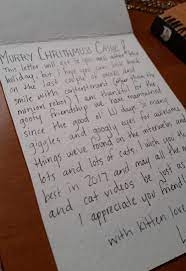 MURRRY CHRISTMUSS CASSIE!
This letter will get to you well after the
holiday, but I hope you
on the last couple of weeks and
smile with contentment (after
minion robe). I am thankful for the
goofy friendship we have maintained
since the good ol' LJ days. So many
giggles and googly eyes for
things we've found on the internets and
lots and lots of cats! I wish you the
best in 2017 and may all the
and cat videos be just as
I appreciate you friend!
with kitten love,